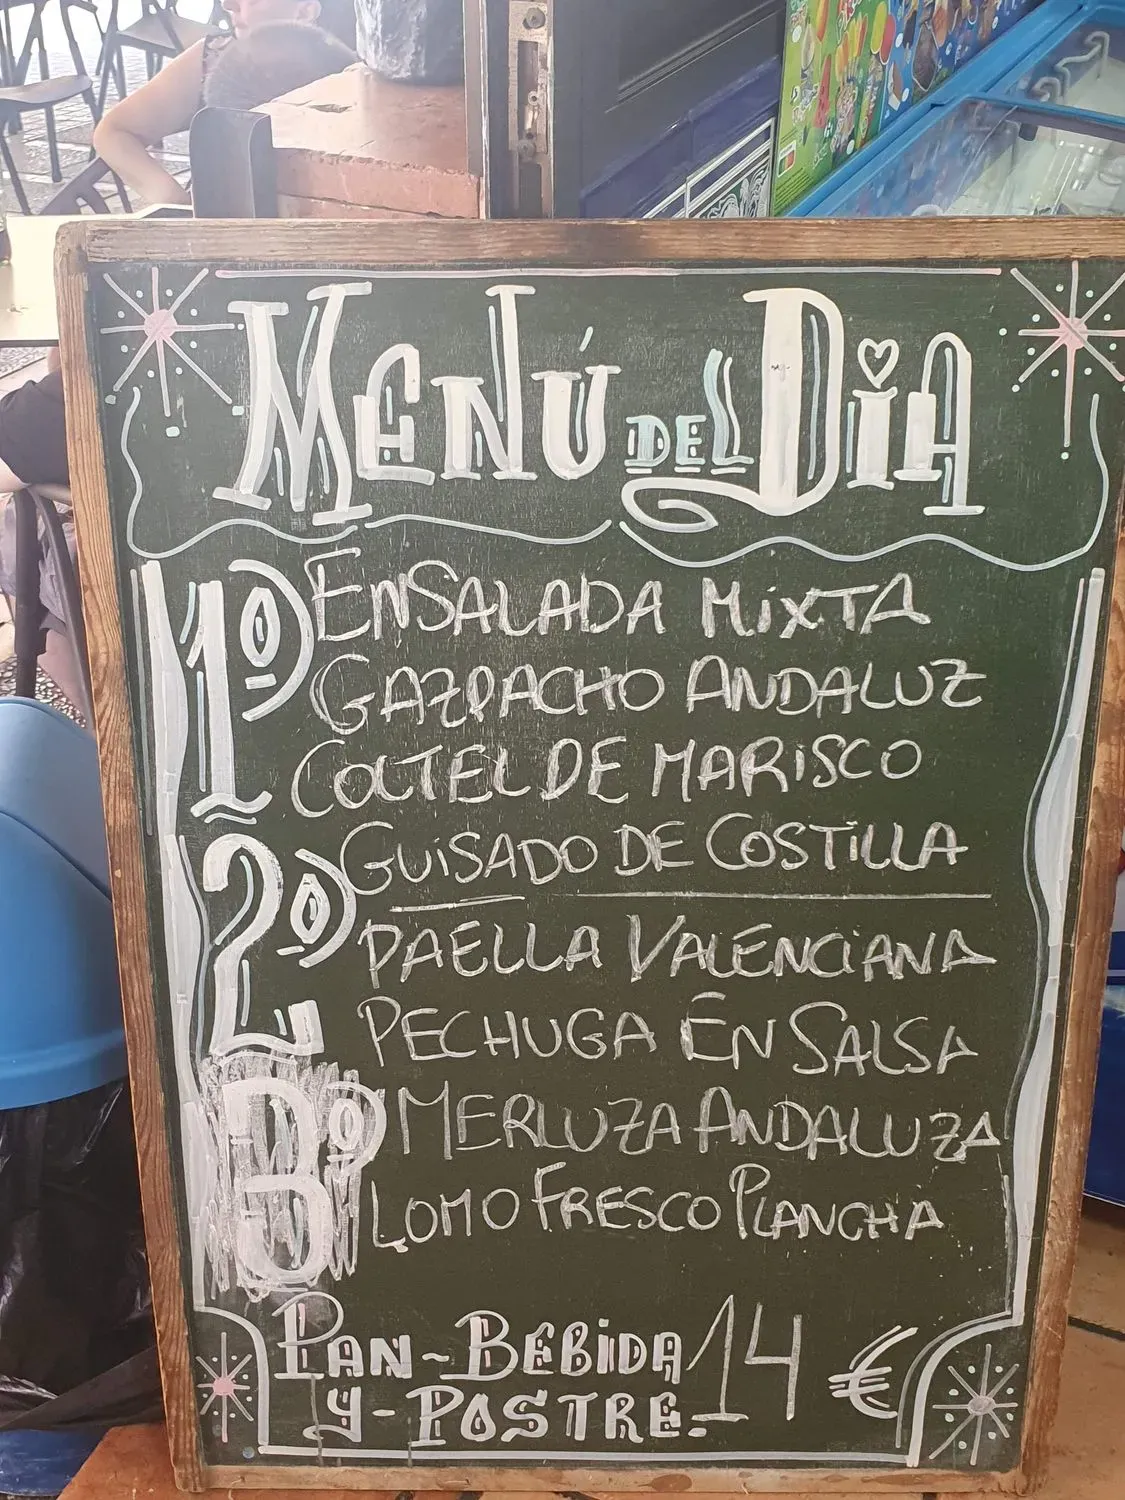 MENÚ DEL DIA
1º ENSALADA MIXTA
GAZPACHO ANDALUZ
COCTEL DE MARISCO
GUISADO DE COSTILLA
2º PAELLA VALENCIANA
PECHUGA EN SALSA
3º MERLUZA ANDALUZA
LOMO FRESCO PLANCHA
PAN-BEBIDA 14 €
Y-POSTRE-